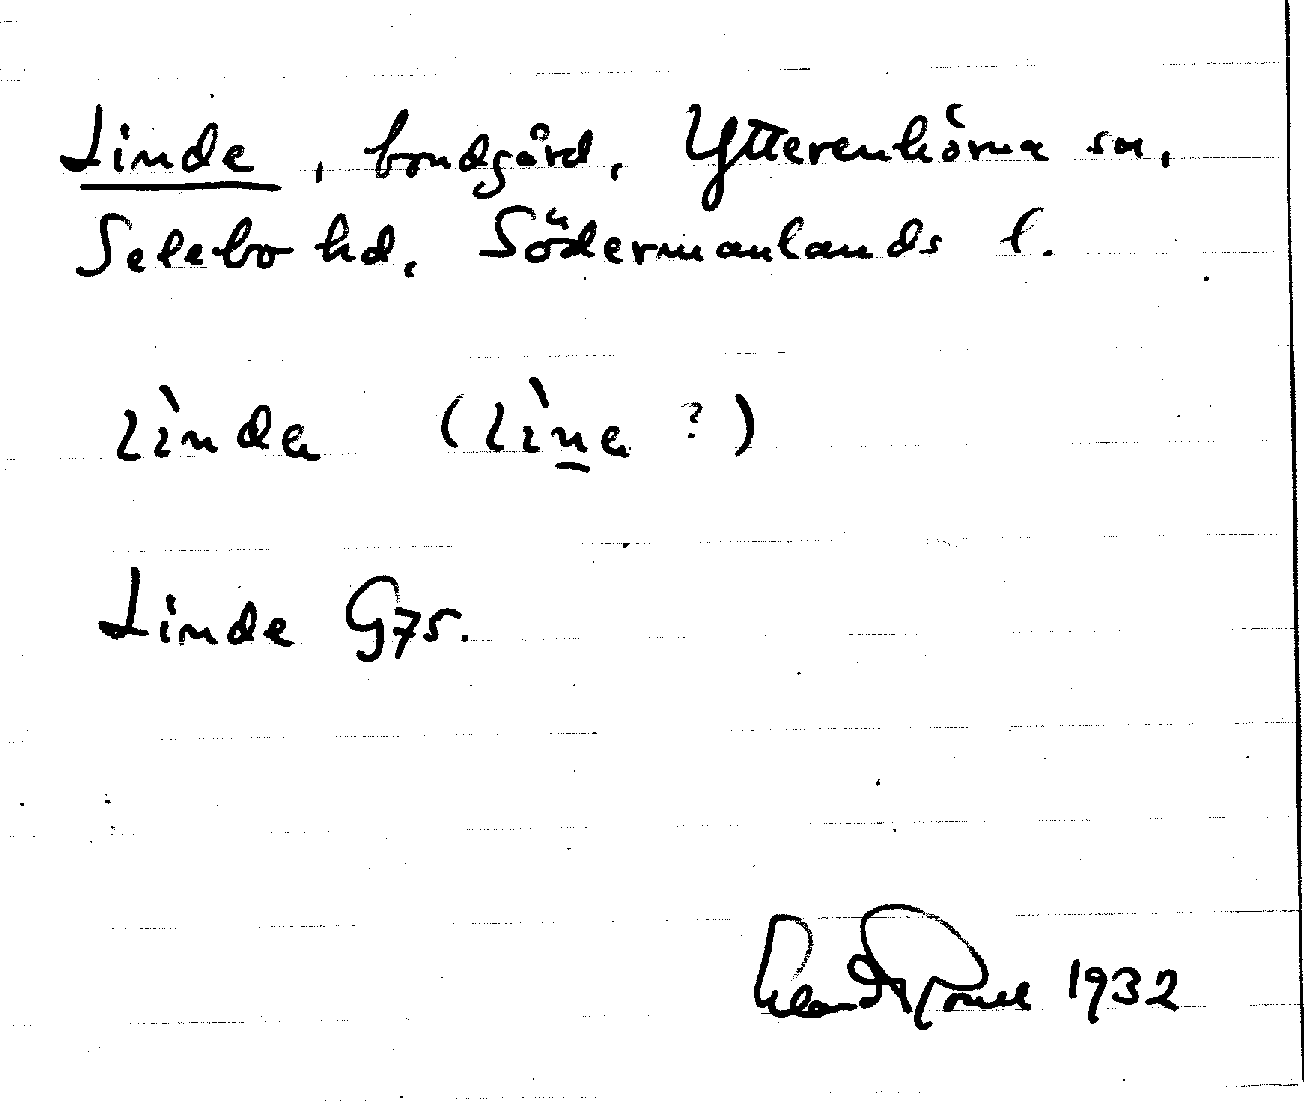 Linde, bondgård, Ytterenhörna sn,
Selebo hd, Södermanlands l.
lìnda (lìna ?)
Linde G75.
1932